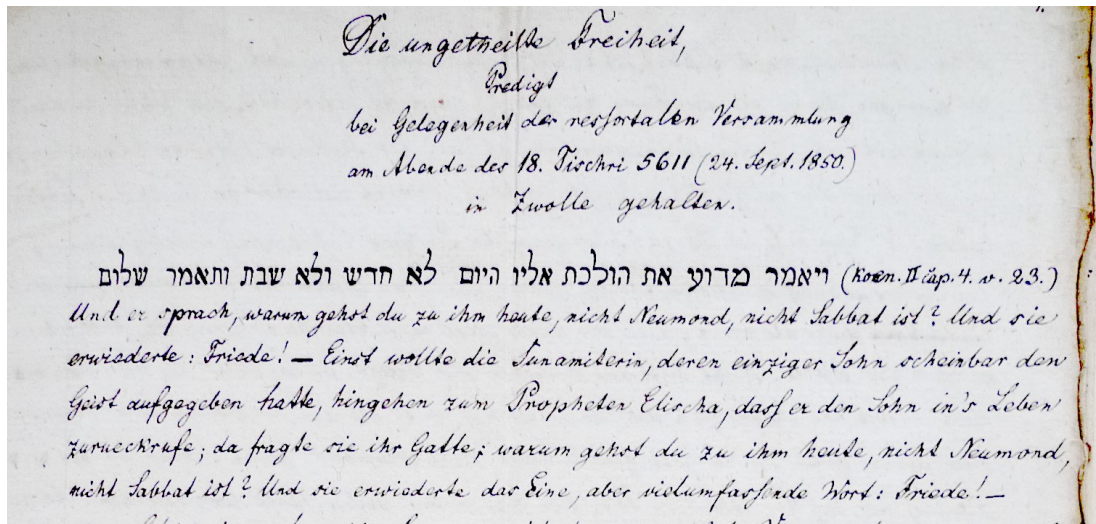 Die ungetheilte Freiheit,
Predigt
bei Gelegenheit der ressortalen Versammlung
am Abende des 18. Tischri 5611 (24. Sept. 1850.)
in Zwolle gehalten.
ויאמר מדוע את הולכת אליו היום לא חדש ולא שבת ותאמר שלום (Koen. II cap. 4. v. 23.)
Und er sprach, warum gehst du zu ihm heute, nicht Neumond, nicht Sabbat ist? Und sie
erwiederte: Friede! — Einst wollte die Sunamiterin, deren einziger Sohn scheinbar den
Geist aufgegeben hatte, hingehen zum Propheten Elischa, dass er den Sohn in's Leben
zurueckrufe; da fragte sie ihr Gatte; warum gehst du zu ihm heute, nicht Neumond,
nicht Sabbat ist? Und sie erwiederte das Eine, aber vielumfassende Wort: Friede! —